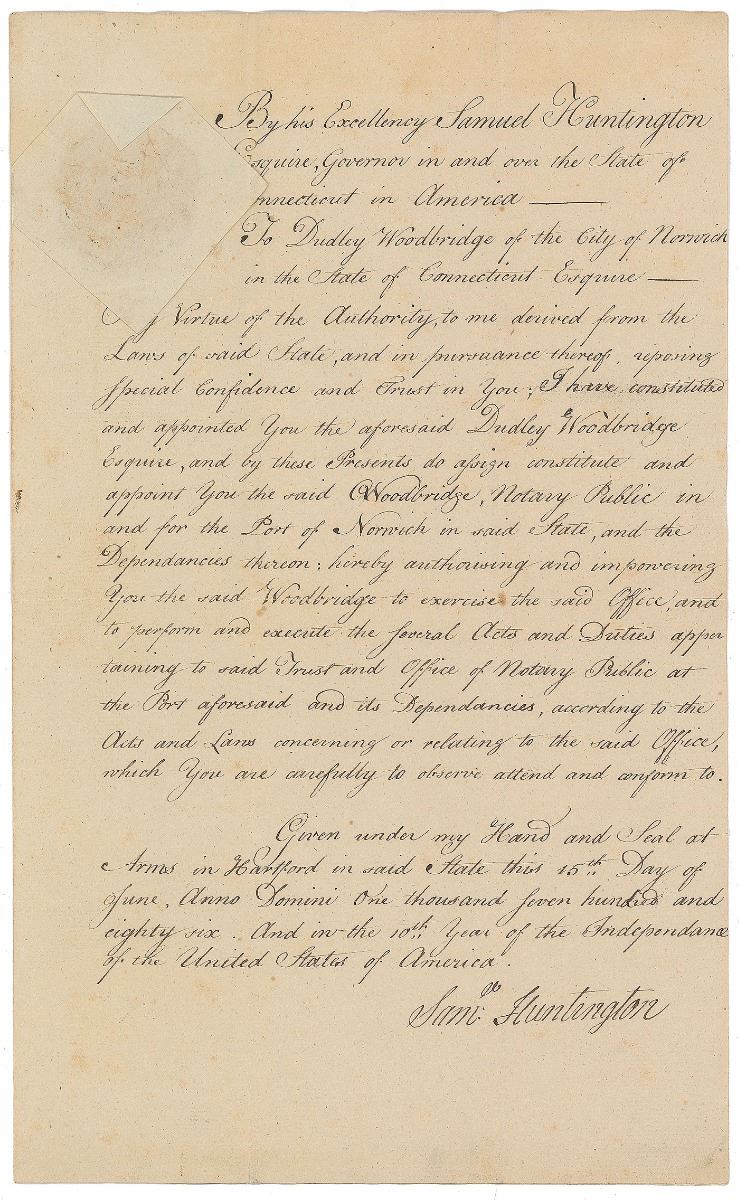 By his Excellency Samuel Huntington
squire, Governor in and over the State of
nnecticut in America —
To Dudley Woodbridge of the City of Norwich
in the State of Connecticut Esquire —
y Virtue of the Authority, to me derived from the
Laws of said State, and in pursuance thereof, reposing
special Confidence and Trust in You; I have constituted
and appointed You the aforesaid Dudley Woodbridge
Esquire, and by these Presents do assign constitute and
appoint You the said Woodbridge, Notary Public in
and for the Port of Norwich in said State, and the
Dependancies thereon: hereby authorising and impowering
You the said Woodbridge to exercise the said Office, and
to perform and execute the several Acts and Duties apper
taining to said Trust and Office of Notary Public at
the Port aforesaid and its Dependancies, according to the
Acts and Laws concerning or relating to the said Office,
which You are carefully to observe attend and conform to.
Given under my Hand and Seal at
Arms in Hartford in said State this 15th Day of
June, Anno Domini One thousand seven hundred and
eighty six. And in the 10th Year of the Independance
of the United States of America.
Samll Huntington